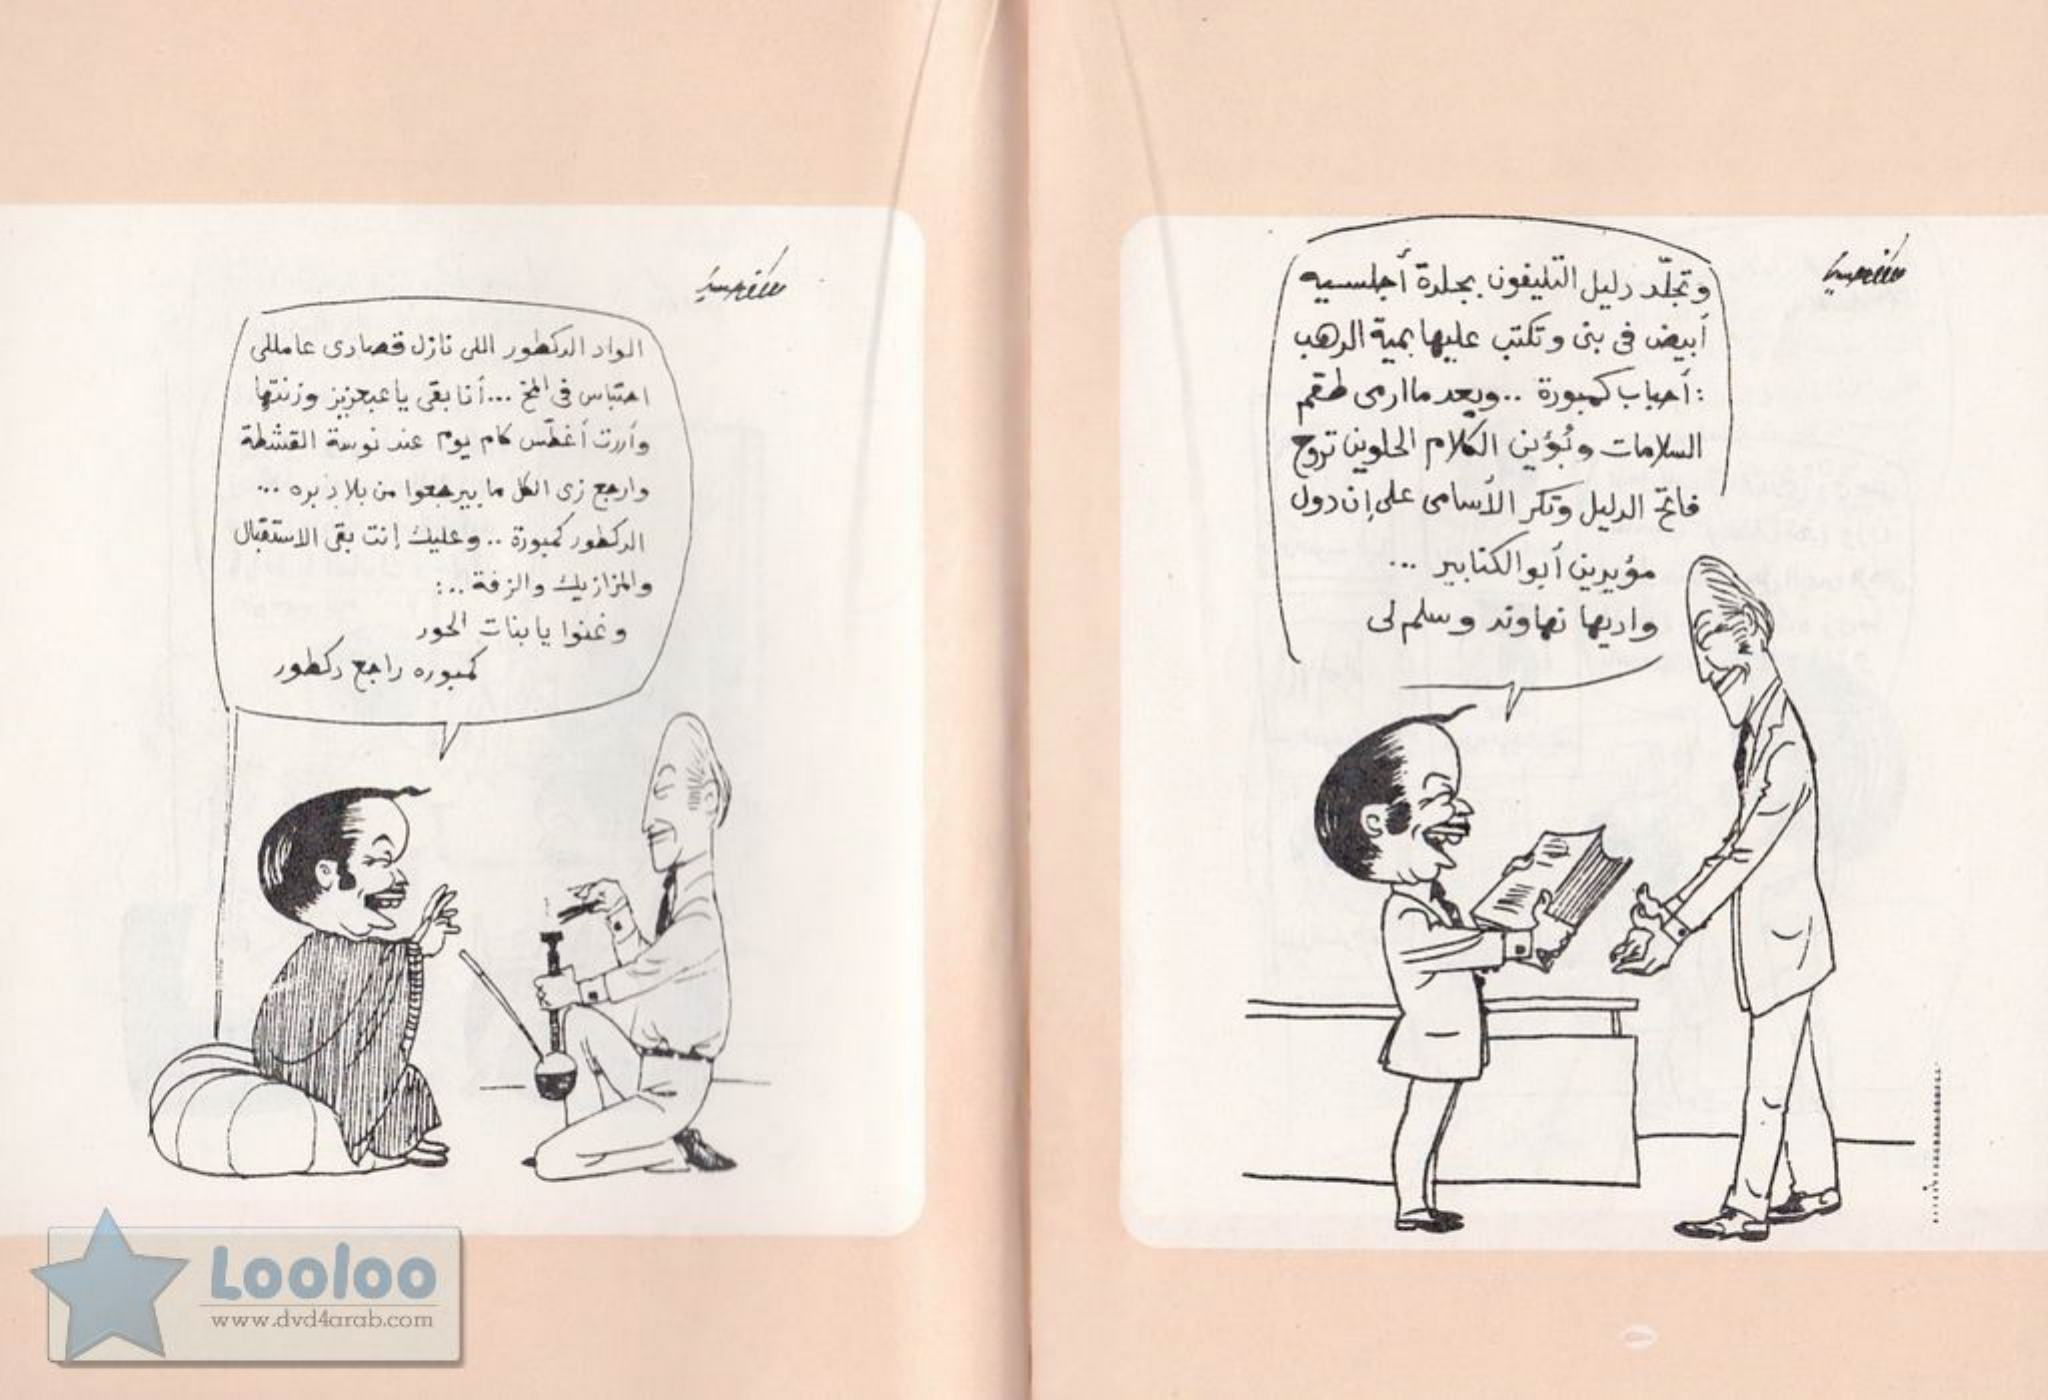 وتجلّد دليل التليفون بجلدة أجلسيه
أبيض فى بنى وتكتب عليها بمية الدهب
: أحباب كمبورة .. وبعد ما ارمى طقم
السلامات وبُؤين الكلام الحلوين تروح
فاتح الدليل وتكر الأسامى على إن دول
مؤيدين أبو الكتابير ...
واديها نهاوند وسلم لى
الواد الدكطور اللى نازل قصادى عامللى
احتباس فى المخ ... أنا بقى يا عبعزيز وزنتها
وأررت أغطّس كام يوم عند نوسة القشطة
وارجع زى الكل ما بيرجعوا من بلاد بره ...
الدكطور كمبورة .. وعليك إنت بقى الاستقبال
والمزازيك والزفة ..:
وغنوا يا بنات الحور
كمبوره راجع دكطور
Looloo
www.dvd4arab.com